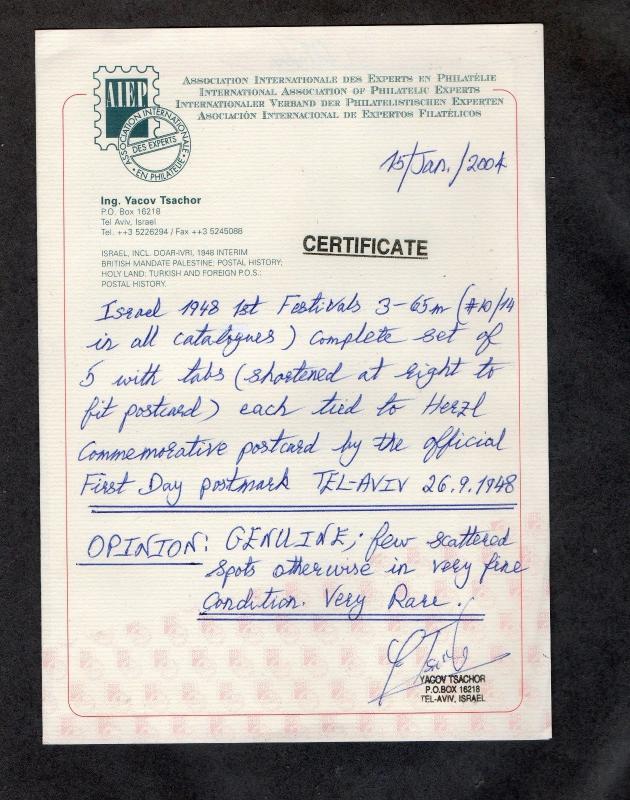 AIEP
ASSOCIATION INTERNATIONALE
DES EXPERTS
EN PHILATÉLIE
ASSOCIATION INTERNATIONALE DES EXPERTS EN PHILATÉLIE
INTERNATIONAL ASSOCIATION OF PHILATELIC EXPERTS
INTERNATIONALER VERBAND DER PHILATELISTISCHEN EXPERTEN
ASOCIACIÓN INTERNACIONAL DE EXPERTOS FILATÉLICOS
15/Jan./2004
Ing. Yacov Tsachor
P.O. Box 16218
Tel Aviv, Israel
Tel. ++3 5226294 / Fax ++3 5245088
CERTIFICATE
ISRAEL, INCL. DOAR-IVRI, 1948 INTERIM
BRITISH MANDATE PALESTINE; POSTAL HISTORY;
HOLY LAND: TURKISH AND FOREIGN P.O.S.:
POSTAL HISTORY.
Israel 1948 1st Festivals 3-65m (#10/14
in all catalogues) complete set of
5 with tabs (shortened at right to
fit postcard) each tied to Herzl
Commemorative postcard by the official
First Day postmark TEL-AVIV 26.9.1948
OPINION: GENUINE; few scattered
spots otherwise in very fine
condition. Very Rare.
YACOV TSACHOR
P.O.BOX 16218
TEL-AVIV, ISRAEL